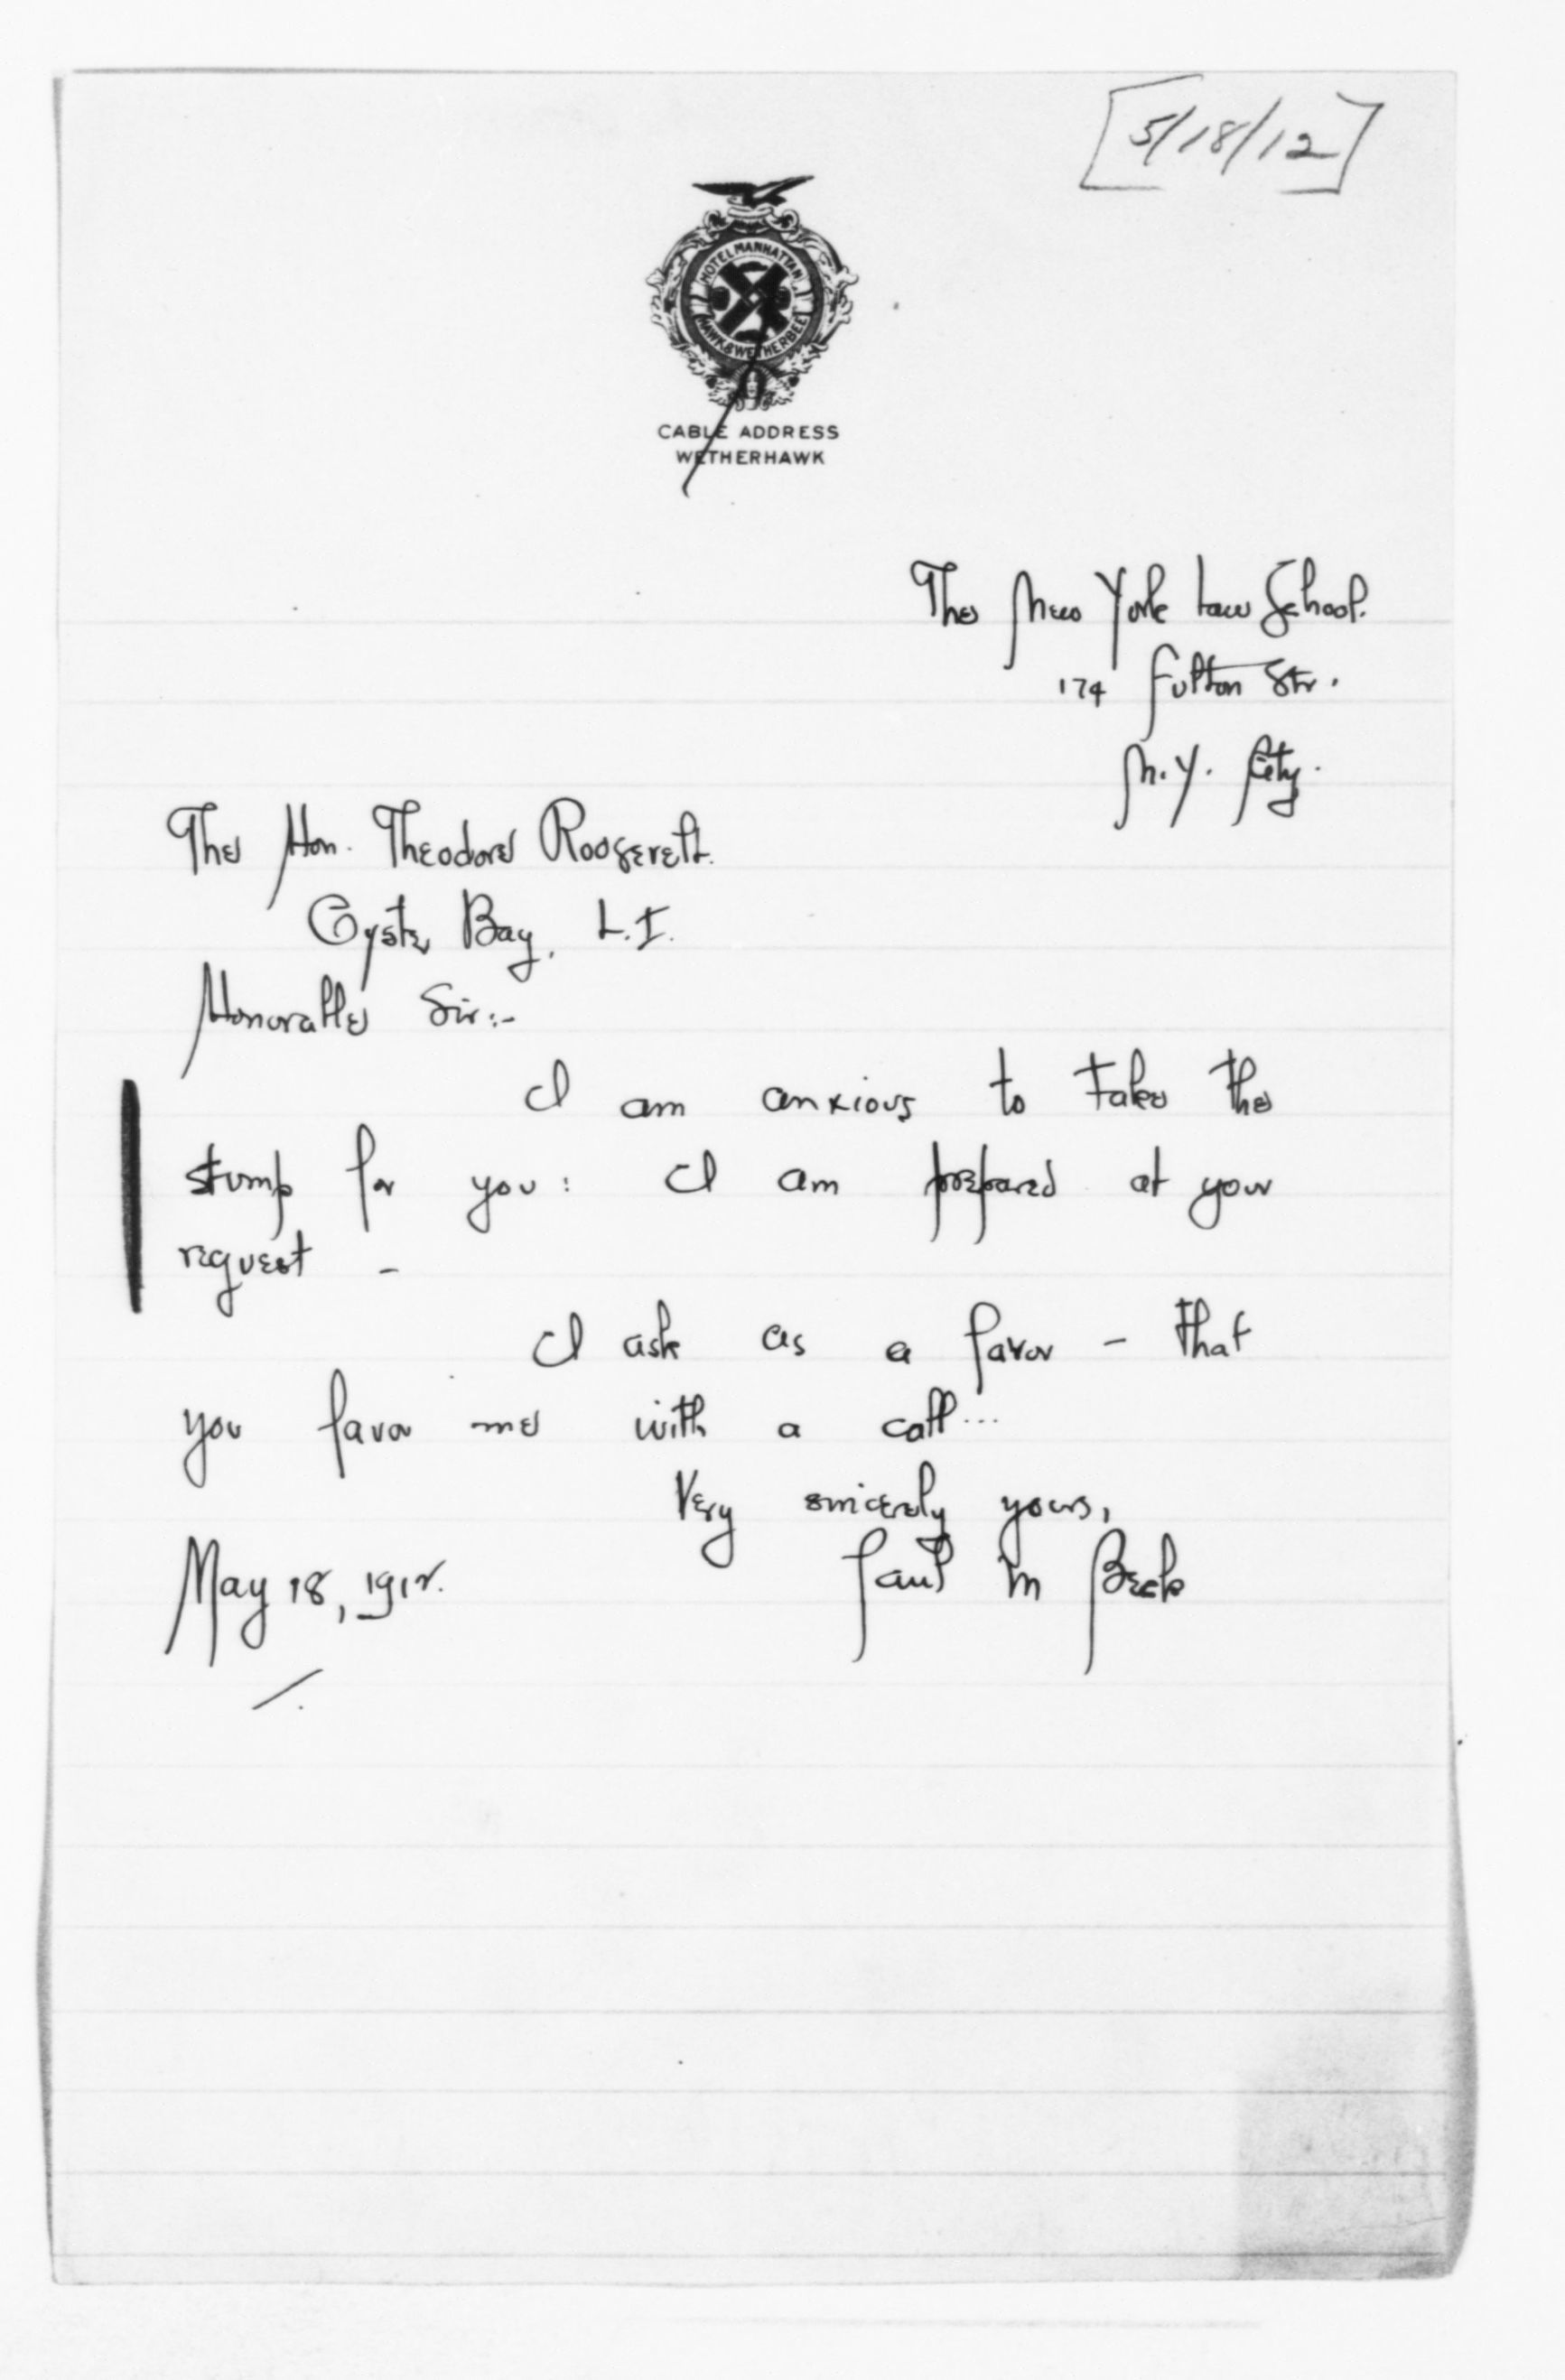 [5/18/12]
HOTEL MANHATTAN
HAWK & WETHERBEE
CABLE ADDRESS
WETHERHAWK
The New York Law School.
174 Fulton Str.
N.Y. City.
The Hon. Theodore Roosevelt.
Oyster Bay, L.I.
Honorable Sir:-
I am anxious to take the
stump for you: I am prepared at your
request -
I ask as a favor - that
you favor me with a call...
Very sincerely yours,
Paul M Beck
May 18, 1912.